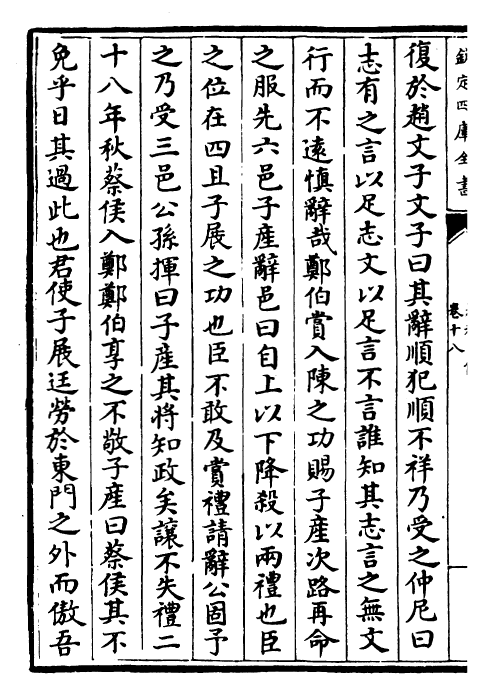 欽定四庫全書
卷十八
復於趙文子文子曰其辭順犯順不祥乃受之仲尼曰
志有之言以足志文以足言不言誰知其志言之無文
行而不遠慎辭哉鄭伯賞入陳之功賜子產次路再命
之服先六邑子產辭邑曰自上以下降殺以兩禮也臣
之位在四且子展之功也臣不敢及賞禮請辭公固予
之乃受三邑公孫揮曰子產其將知政矣讓不失禮二
十八年秋蔡侯入鄭鄭伯享之不敬子產曰蔡侯其不
免乎日其過此也君使子展迋勞於東門之外而傲吾